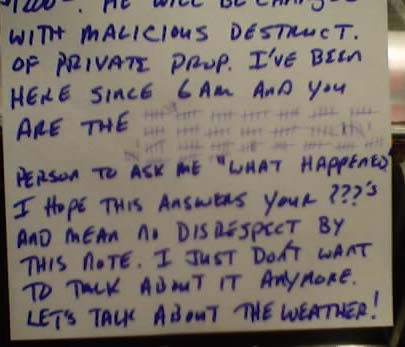 HE WILL BE CHARGED
WITH MALICIOUS DESTRUCT.
OF PRIVATE PROP. I'VE BEEN
HERE SINCE 6 AM AND YOU
ARE THE
PERSON TO ASK ME "WHAT HAPPENED"
I HOPE THIS ANSWERS YOUR ???'S
AND MEAN NO DISRESPECT BY
THIS NOTE. I JUST DON'T WANT
TO TALK ABOUT IT ANYMORE.
LET'S TALK ABOUT THE WEATHER!